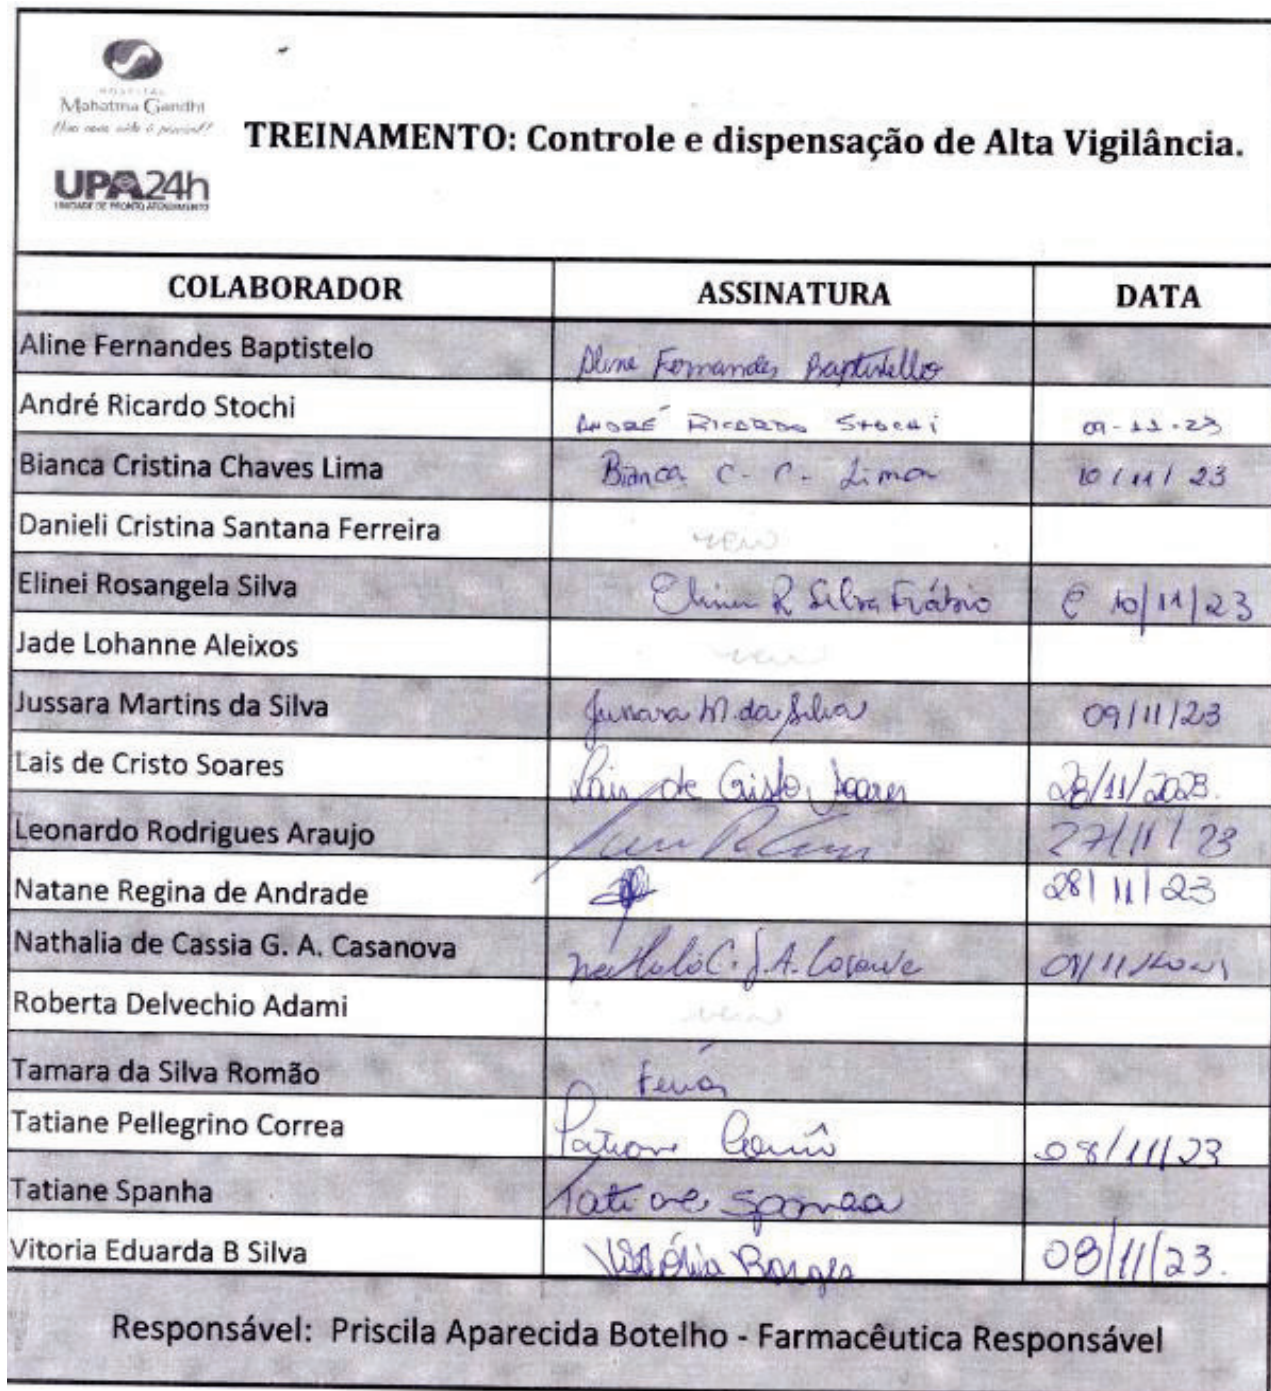 HOSPITAL
Mahatma Gandhi
UPA24h
UNIDADE DE PRONTO ATENDIMENTO
TREINAMENTO: Controle e dispensação de Alta Vigilância.
COLABORADOR ASSINATURA DATA
Aline Fernandes Baptistelo Aline Fernandes Baptistello
André Ricardo Stochi ANDRÉ RICARDO STOCHI 09-11-23
Bianca Cristina Chaves Lima Bianca C. C. Lima 10/11/23
Danieli Cristina Santana Ferreira
Elinei Rosangela Silva Elinei R Silva 10/11/23
Jade Lohanne Aleixos
Jussara Martins da Silva Jussara M. da Silva 09/11/23
Lais de Cristo Soares Lais de Cristo Soares 28/11/2023.
Leonardo Rodrigues Araujo 27/11/23
Natane Regina de Andrade 28/11/23
Nathalia de Cassia G. A. Casanova Nathalia C. G. A. Casanova
Roberta Delvechio Adami
Tamara da Silva Romão Férias
Tatiane Pellegrino Correa Tatiane 08/11/23
Tatiane Spanha Tatiane Spanha
Vitoria Eduarda B Silva Vitória Borges 08/11/23.
Responsável: Priscila Aparecida Botelho - Farmacêutica Responsável